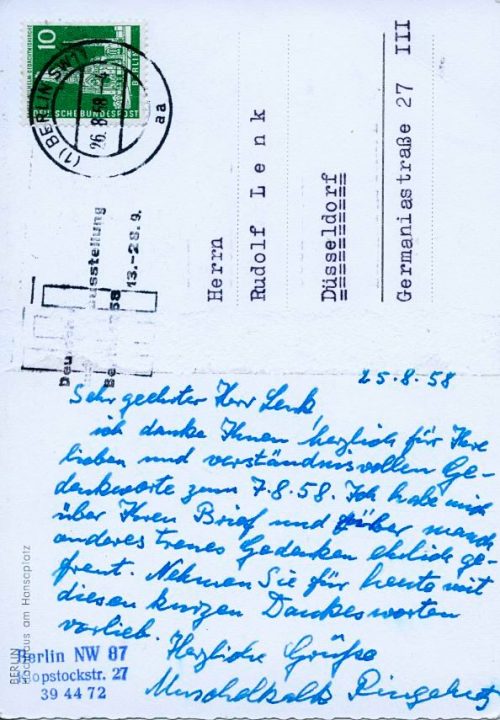 10
DEUTSCHE BUNDESPOST
BERLIN
(1) BERLIN SW 11
26.8.58
aa
ausstellung
13.-28.9.
Herrn
Rudolf Lenk
Düsseldorf
Germaniastraße 27 III
25.8.58
Sehr geehrter Herr Lenk,
ich danke Ihnen herzlich für Ihre
lieben und verständnisvollen Ge-
denkworte zum 7.8.58. Ich habe mich
über Ihren Brief und über manch
anderes treues Gedenken ehrlich ge-
freut. Nehmen Sie für heute mit
diesen kurzen Dankesworten
vorlieb.
Herzliche Grüße
Muschelkalk Ringelnatz
BERLIN
Hochhaus am Hansaplatz
Berlin NW 87
opstockstr. 27
39 44 72